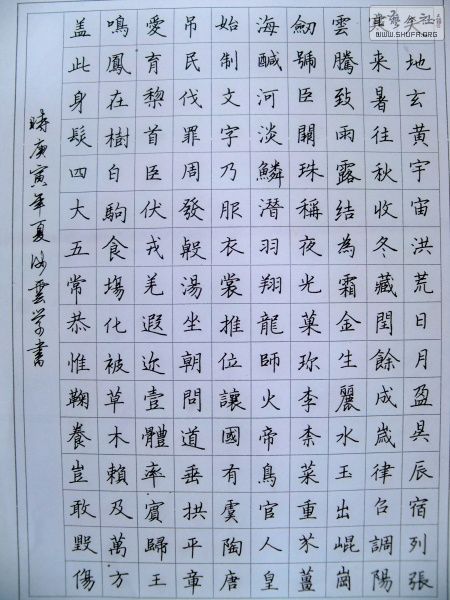 地玄黃宇宙洪荒日月盈昃辰宿列張
來暑往秋收冬藏閏餘成歲律吕調陽
雲騰致雨露結為霜金生麗水玉出崐崗
劒號巨闕珠稱夜光菓珍李柰菜重芥薑
海鹹河淡鱗潛羽翔龍師火帝鳥官人皇
始制文字乃服衣裳推位讓國有虞陶唐
吊民伐罪周發殷湯坐朝問道垂拱平章
愛育黎首臣伏戎羌遐迩壹體率賓歸王
鳴鳳在樹白駒食場化被草木賴及萬方
盖此身髮四大五常恭惟鞠養豈敢毀傷
時庚寅年夏雲書
WWW.SHUFA.ORG